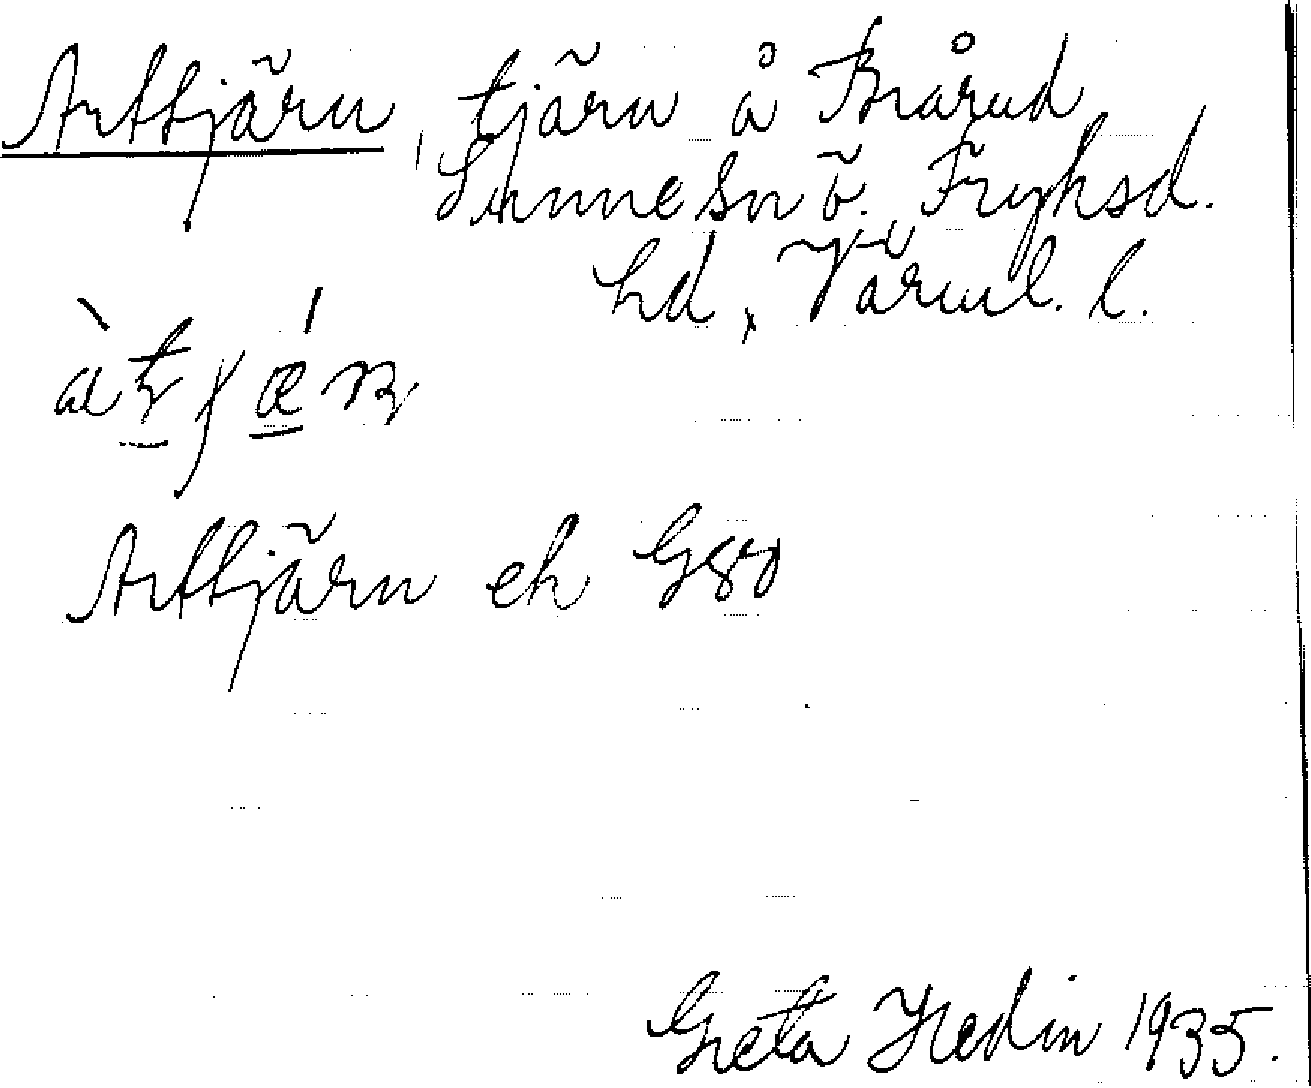 Arttjärn, tjärn å Brårud
Sunne sn ö. Fryksd.
hd, Värml. l.
Arttjärn ek G80
Greta Hedin 1935.